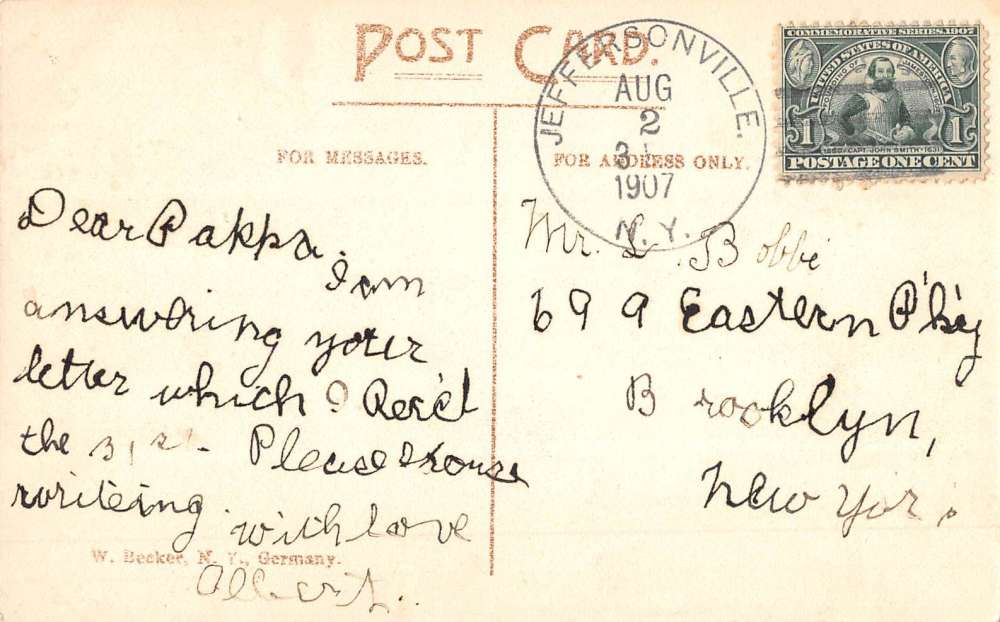 POST CARD.
FOR MESSAGES.
FOR ADDRESS ONLY.
JEFFERSONVILLE.
AUG
2
1907
N.Y.
COMMEMORATIVE SERIES, 1907
UNITED STATES OF AMERICA
FOUNDING OF JAMESTOWN
1580 CAPT. JOHN SMITH 1631
1 1
POSTAGE ONE CENT
Dear Pakpa.
I am
answering your
letter which I Rec'd
the 31st. Please
writeing.
with love
Albert.
Mr. L. Bobbi
699 Eastern P'k'y
Brooklyn,
New Yor.
W. Becker, N. Y., Germany.